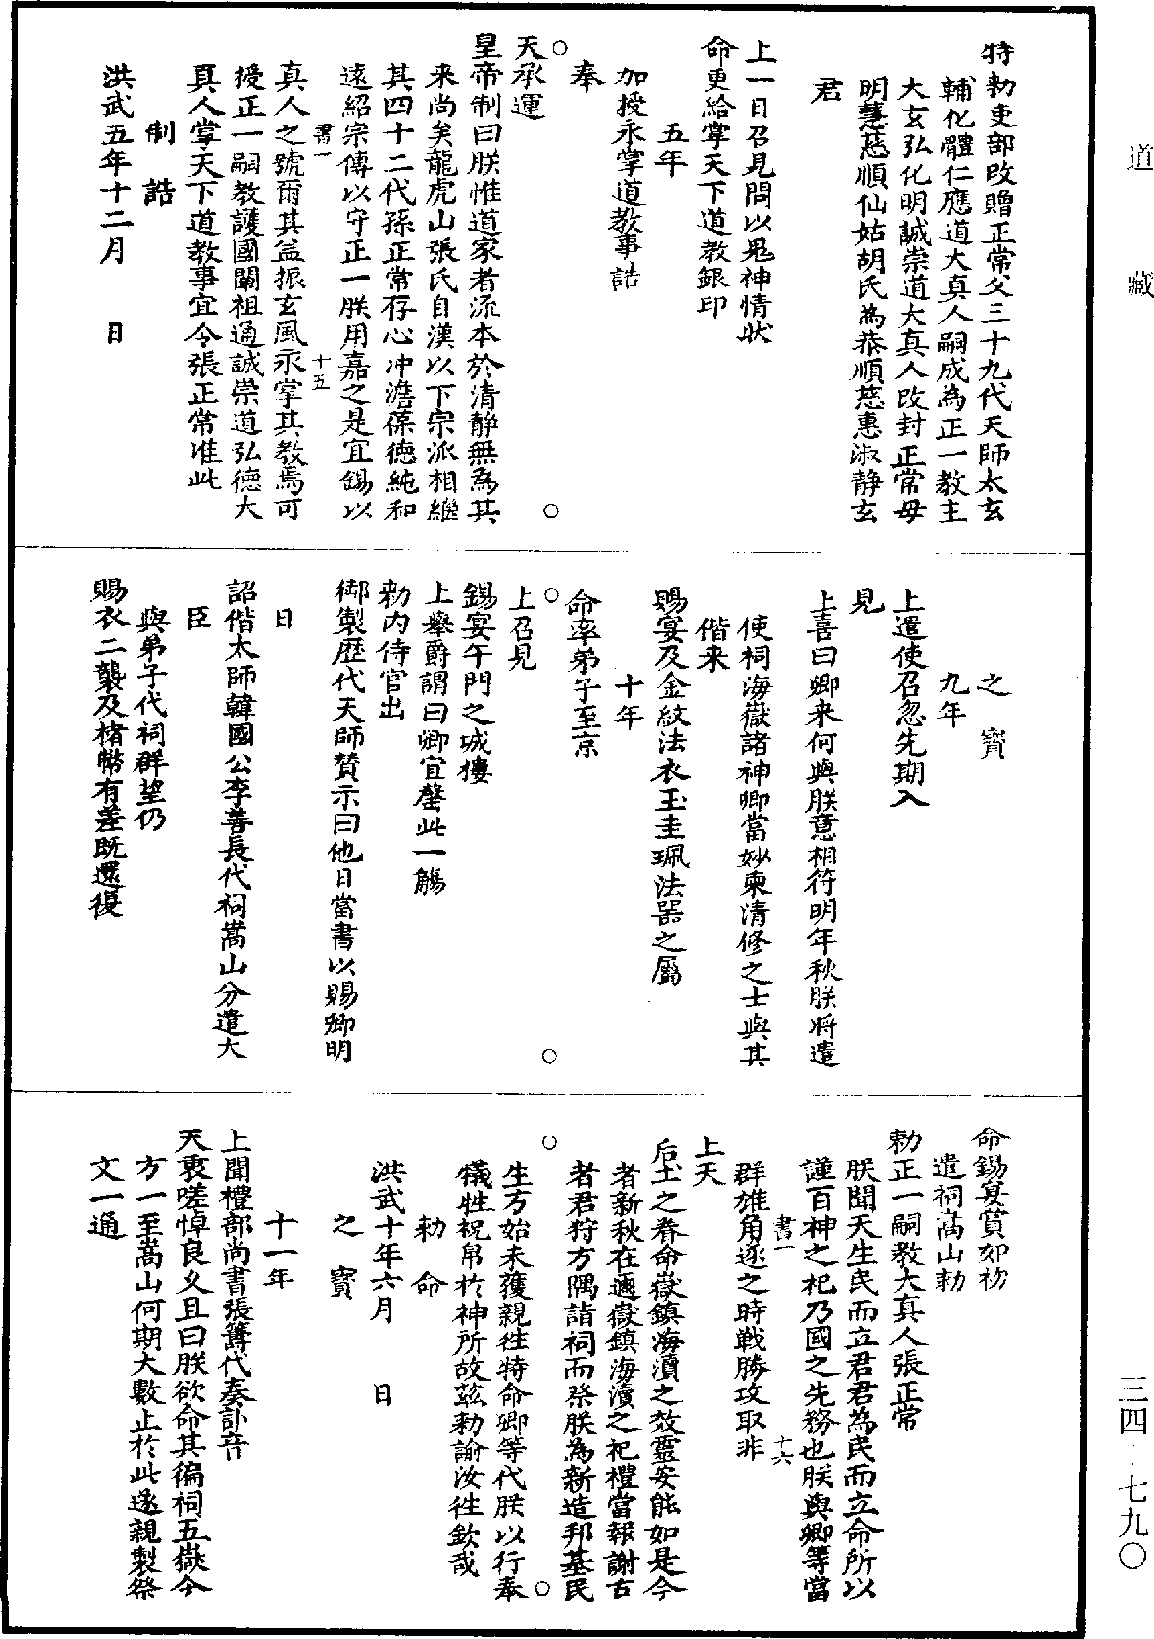 道藏
特勑吏部改贈正常父三十九代天師太玄
輔化體仁應道大真人嗣成為正一教主
大玄弘化明誠崇道大真人改封正常母
明慧慈順仙姑胡氏為恭順慈惠淑靜玄
君
上一日召見問以鬼神情狀
命更給掌天下道教銀印
五年
加授永掌道教事誥
奉
天承運
皇帝制曰朕惟道家者流本於清靜無為其
来尚矣龍虎山張氏自漢以下宗派相繼
其四十二代孫正常存心冲澹葆德純和
遠紹宗傳以守正一朕用嘉之是宜錫以
書一 十五
真人之號爾其益振玄風永掌其教焉可
授正一嗣教護國闡祖通誠崇道弘德大
真人掌天下道教事宜令張正常准此
制誥
洪武五年十二月 日
之寶
九年
上遣使召忽先期入
見
上喜曰卿来何與朕意相符明年秋朕將遣
使祠海嶽諸神卿當妙柬清修之士與其
偕来
賜宴及金紋法衣玉圭珮法器之屬
十年
命率弟子至京
上召見
錫宴午門之城樓
上舉爵謂曰卿宜罄此一觴
勑内侍官出
御製歷代天師贊示曰他日當書以賜卿明
日
詔偕太師韓國公李善長代祠嵩山分遣大
臣
與弟子代祠群望仍
賜衣二襲及楮幣有差既還復
命錫宴賞如初
遣祠嵩山勑
勑正一嗣教大真人張正常
朕聞天生民而立君君為民而立命所以
謹百神之祀乃國之先務也朕與卿等當
書一 十六
群雄角逐之時戰勝攻取非
上天
后土之眷命嶽鎮海瀆之效靈安能如是今
者新秋在邇嶽鎮海瀆之祀禮當報謝古
者君狩方隅詣祠而祭朕為新造邦基民
生方始未獲親徃特命卿等代朕以行奉
犧牲祝帛於神所故茲勑諭汝徃欽哉
勑命
洪武十年六月 日
之寶
十一年
上聞禮部尚書張籌代奏訃音
天衷嗟悼良久且曰朕欲命其徧祠五嶽今
方一至嵩山何期大數止於此遂親製祭
文一通
三四·七九〇